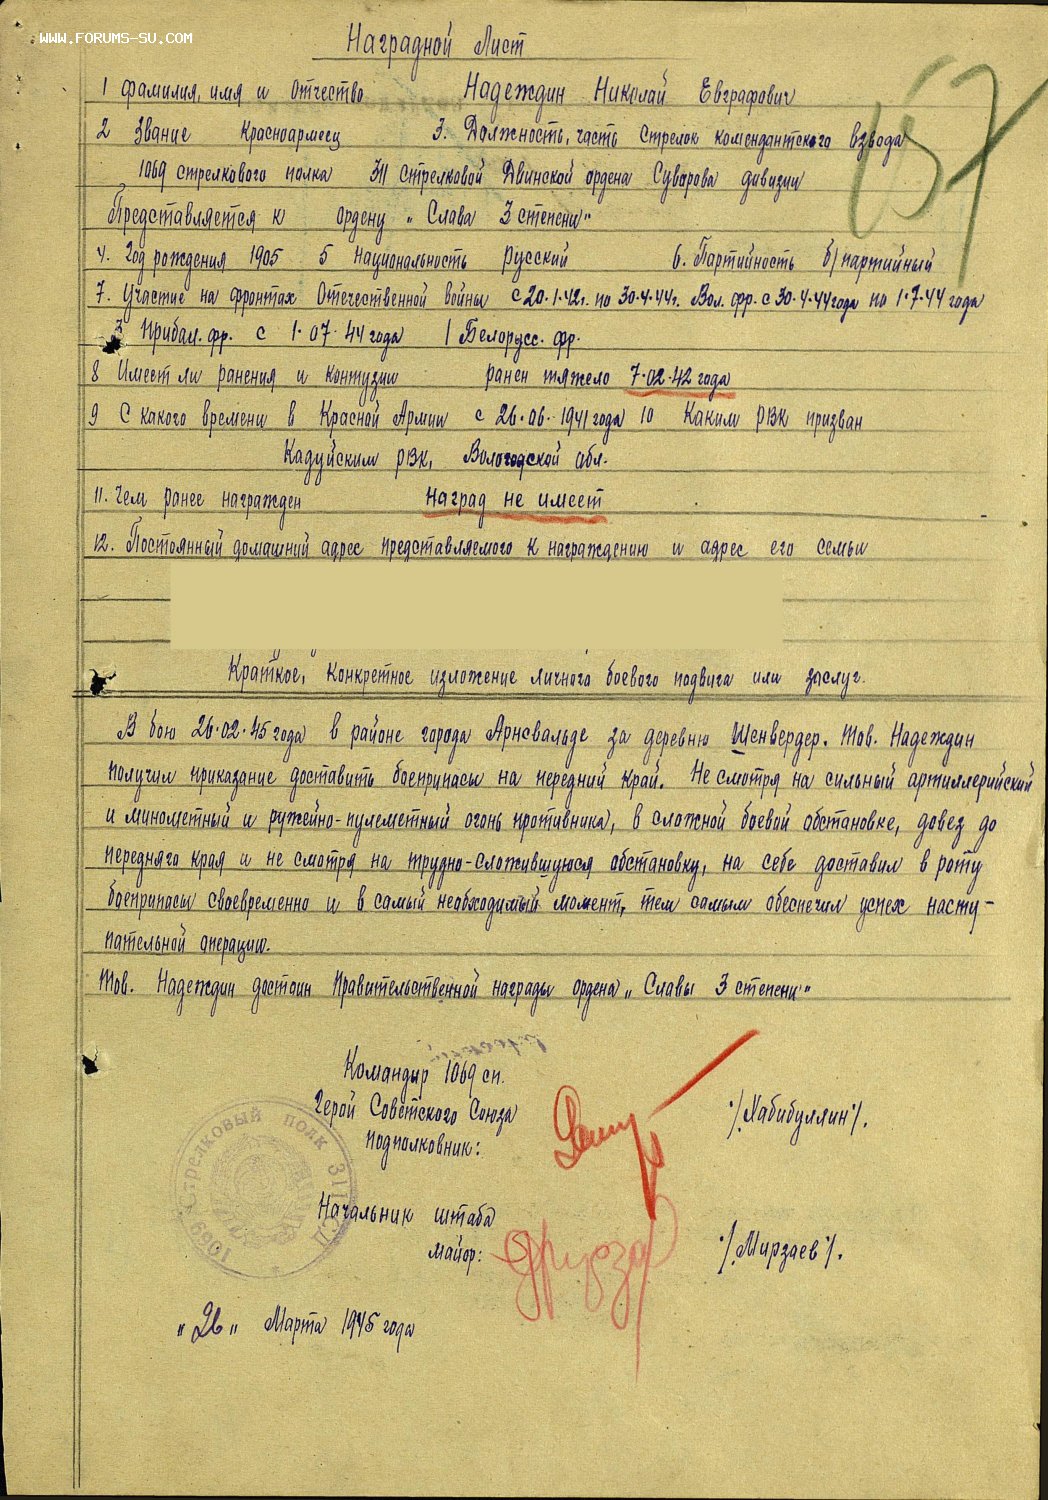 WWW.FORUMS-SU.COM
Наградной Лист
157
1 Фамилия, имя и Отчество Надеждин Николай Евграфович
2 Звание Красноармеец 3. Должность, часть стрелок комендантского взвода
1069 стрелкового полка 311 стрелковой Двинской ордена Суворова дивизии
Представляется к ордену „Слава 3 степени"
4. Год рождения 1905 5 национальность русский 6. Партийность б/партийный
7. Участие на фронтах Отечественной войны с 20.1.42г. по 30.4.44г. Вол. фр. с 30.4.44 года по 1.7.44 года
3 Прибал. фр. с 1.07.44 года 1 Белорусс. фр.
8 Имеет ли ранения и контузии ранен тяжело 7.02.42 года
9 С какого времени в Красной Армии с 26.06.1941 года 10 Каким РВК призван
Кадуйским РВК, Вологодской обл.
11. Чем ранее награжден наград не имеет
12. Постоянный домашний адрес представляемого к награждению и адрес его семьи
Краткое, конкретное изложение личного боевого подвига или заслуг.
В бою 26.02.45 года в районе города Арнсвальде за деревню Шенвердер. Тов. Надеждин
получил приказание доставить боеприпасы на передний край. Не смотря на сильный артиллерийский
и минометный и ружейно-пулеметный огонь противника, в сложной боевой обстановке, довез до
передняго края и не смотря на трудно-сложившуюся обстановку, на себе доставил в роту
боеприпасы своевременно и в самый необходимый момент, тем самым обеспечил успех насту-
пательной операцию.
Тов. Надеждин достоин Правительственной награды ордена „Славы 3 степени"
Командир 1069 сп.
Герой Советского Союза
подполковник: /Хабибуллин/.
1069 Стрелковый полк 311 СД
Начальник штаба
майор: /Мирзаев/.
„26„ Марта 1945 года